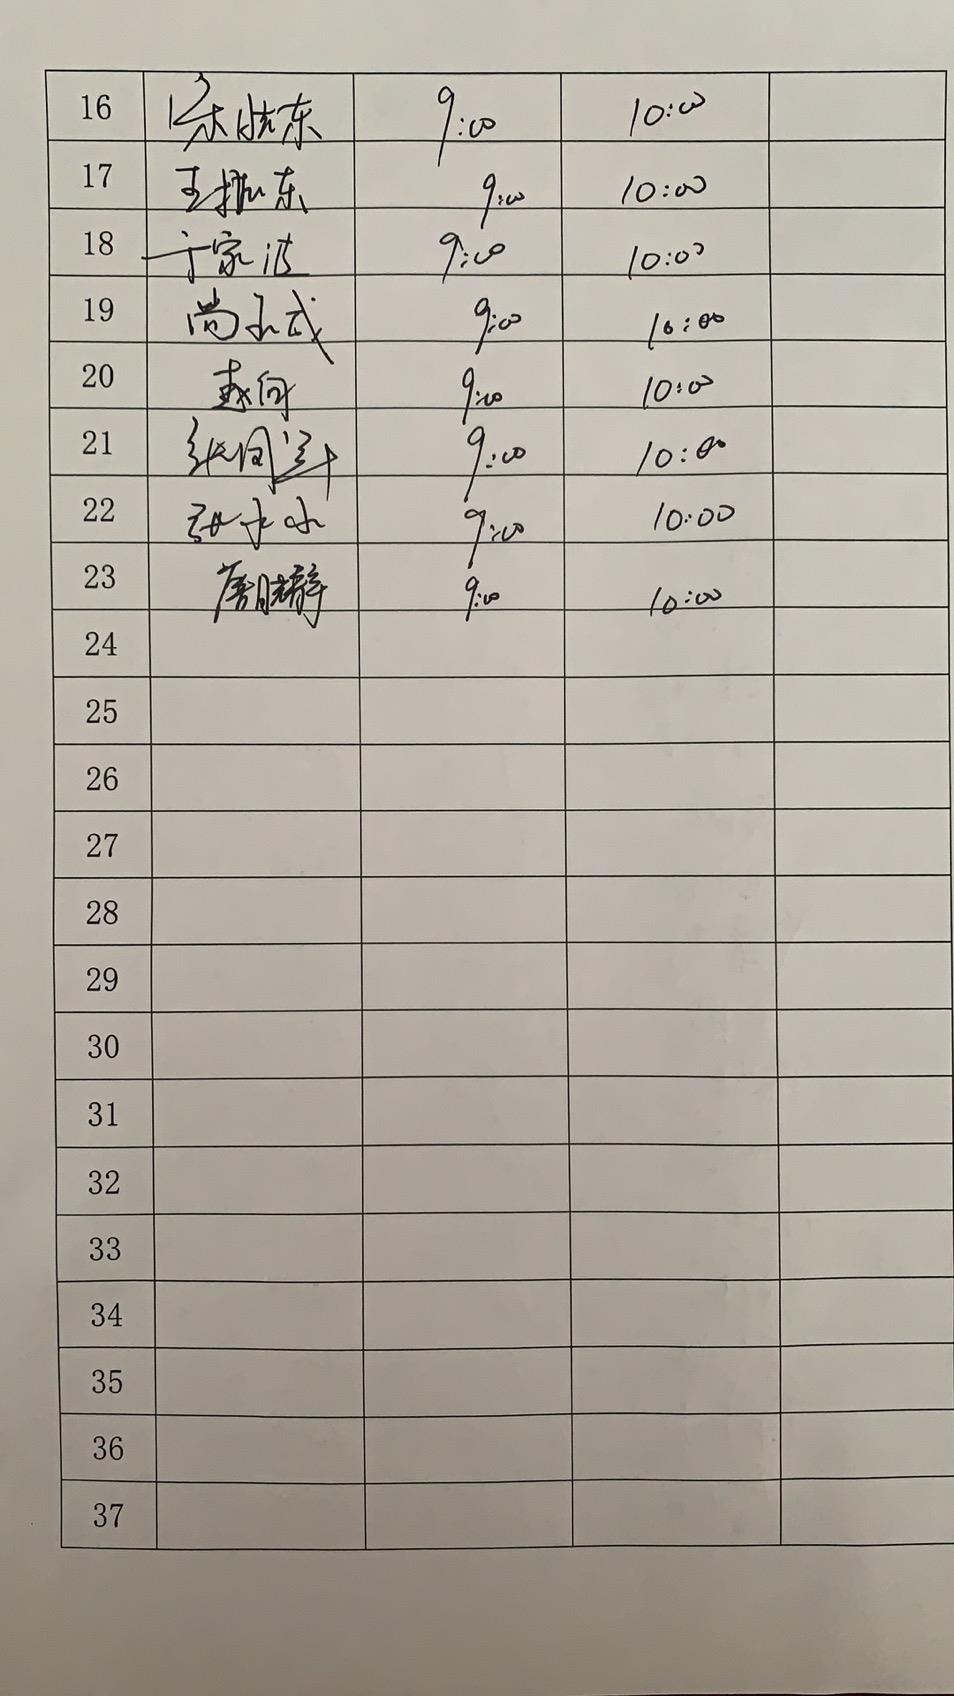 16 9:00 10:00
17 王振东 9:00 10:00
18 于家波 9:00 10:00
19 尚永武 9:00 10:00
20 赵何 9:00 10:00
21 9:00 10:00
22 9:00 10:00
23 唐晓静 9:00 10:00
24
25
26
27
28
29
30
31
32
33
34
35
36
37